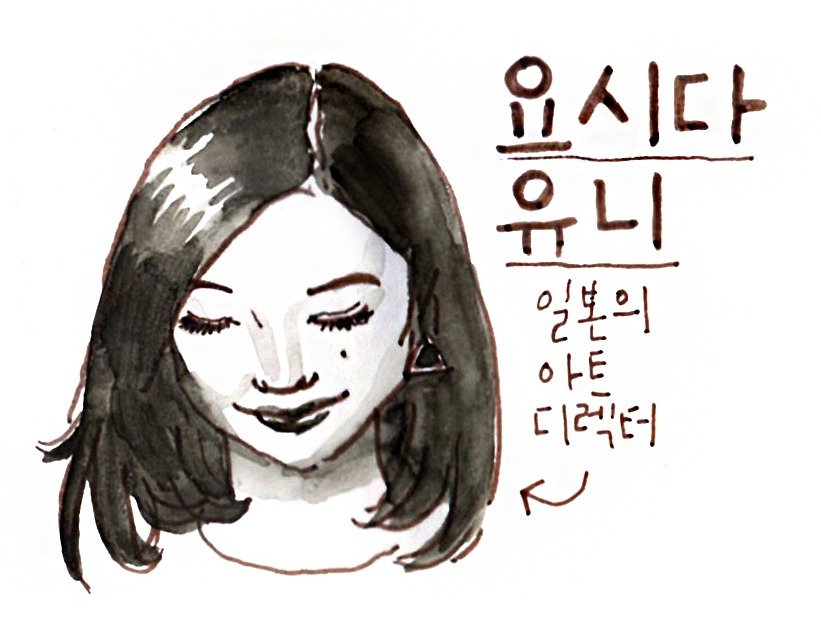 요시다
유니
일본의
아트
디렉터